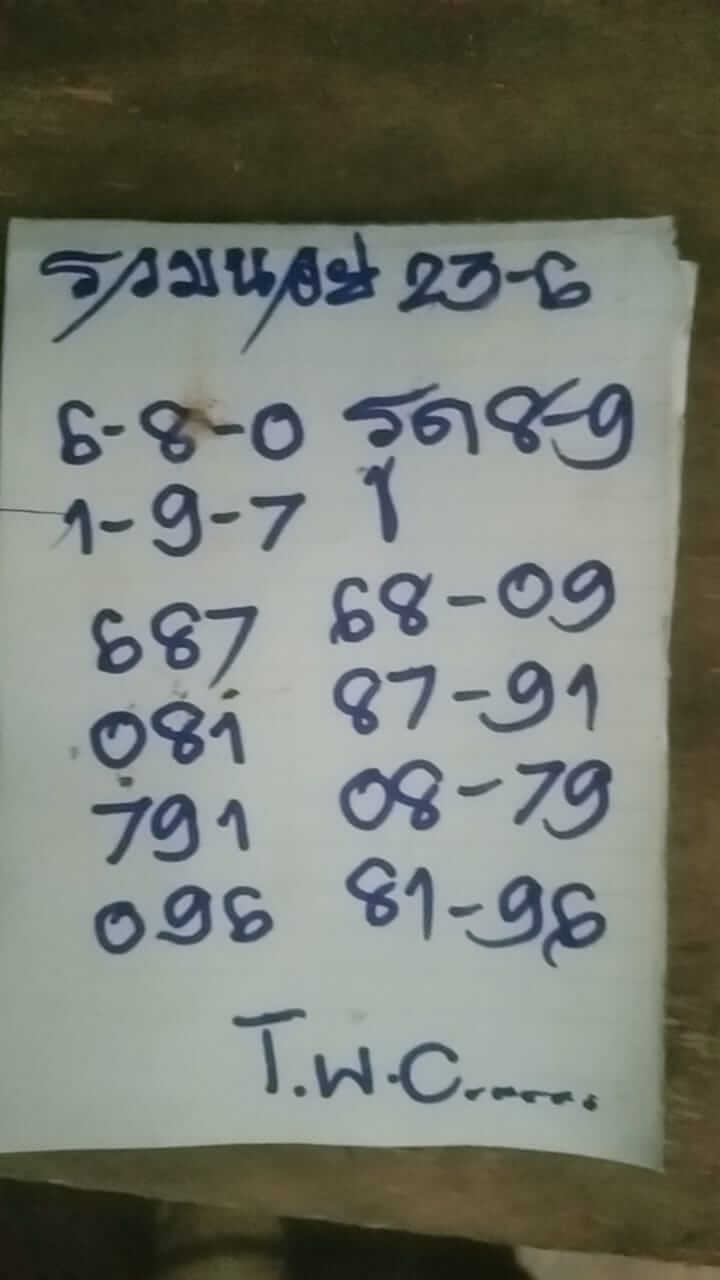 รวมนอย 23-6
6-8-0 รูด 8-9
1-9-7
687 68-09
081 87-91
791 08-79
096 81-96
T.W.C.......